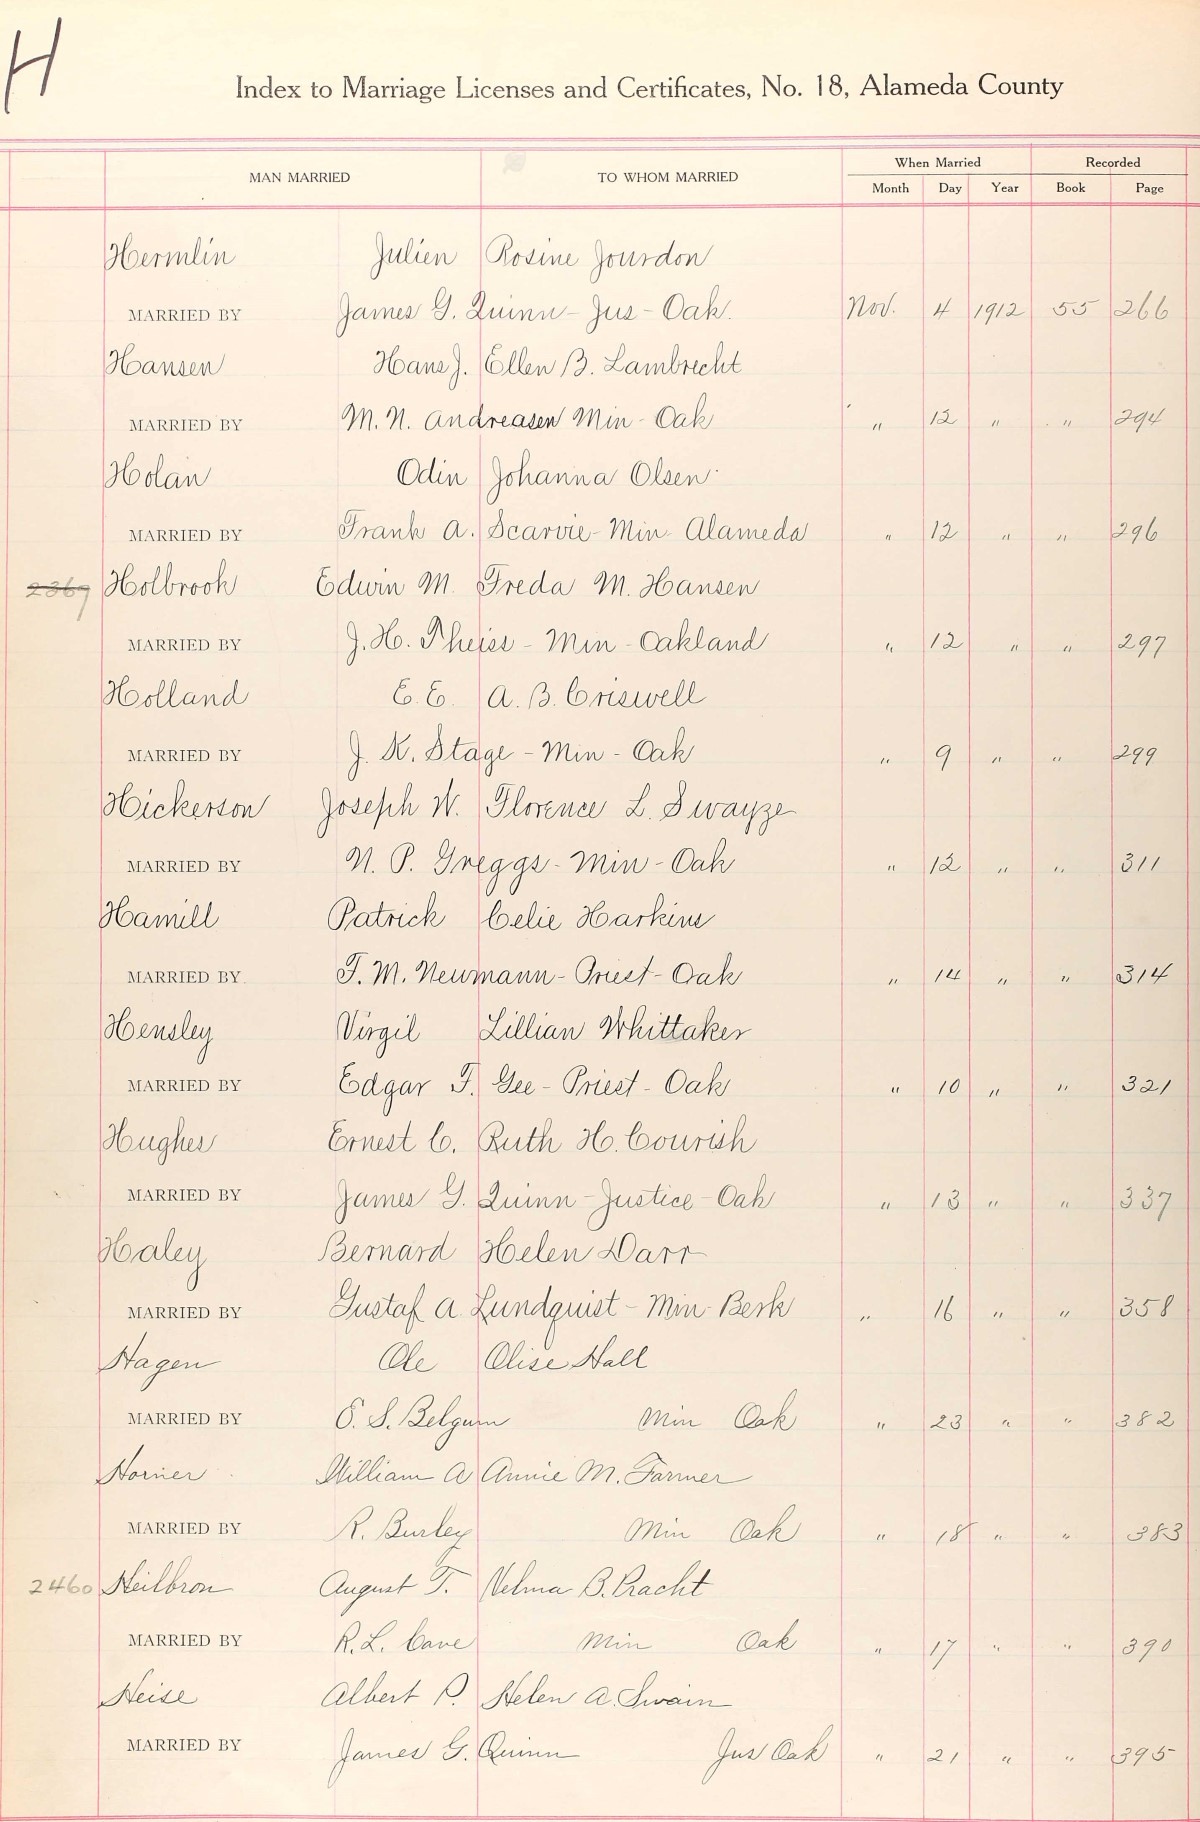 H
Index to Marriage Licenses and Certificates, No. 18, Alameda County
MAN MARRIED TO WHOM MARRIED When Married Recorded
Month Day Year Book Page
Hermlin Julien Rosine Jourdon
MARRIED BY James G. Quinn - Jus - Oak. Nov. 4 1912 55 266
Hansen Hans J. Ellen B. Lambrecht
MARRIED BY M. N. Andreasen Min - Oak " 12 " " 294
Holan Odin Johanna Olsen
MARRIED BY Frank A. Scarvie - Min - Alameda " 12 " " 296
2367 Holbrook Edwin M. Freda M. Hansen
MARRIED BY J. H. Theiss - Min - Oakland " 12 " " 297
Holland E. E. A. B. Criswell
MARRIED BY J. K. Stage - Min - Oak " 9 " " 299
Hickerson Joseph W. Florence L. Swayze
MARRIED BY N. P. Greggs - Min - Oak " 12 " " 311
Hamill Patrick Celie Harkins
MARRIED BY T. M. Neumann - Priest - Oak " 14 " " 314
Hensley Virgil Lillian Whittaker
MARRIED BY Edgar F. Gee - Priest - Oak " 10 " " 321
Hughes Ernest C. Ruth H. Courish
MARRIED BY James G. Quinn - Justice - Oak " 13 " " 337
Haley Bernard Helen Darr
MARRIED BY Gustaf A. Lundquist - Min - Berk " 16 " " 358
Hagen Ole Olise Hall
MARRIED BY O. S. Belgum Min Oak " 23 " " 382
Horner William A Annie M. Farmer
MARRIED BY R. Burley Min Oak " 18 " " 383
2460 Heilbron August T. Velma B. Pracht
MARRIED BY R. L. Cave Min Oak " 17 " " 390
Heise Albert P. Helen A. Swain
MARRIED BY James G. Quinn Jus Oak " 21 " " 395